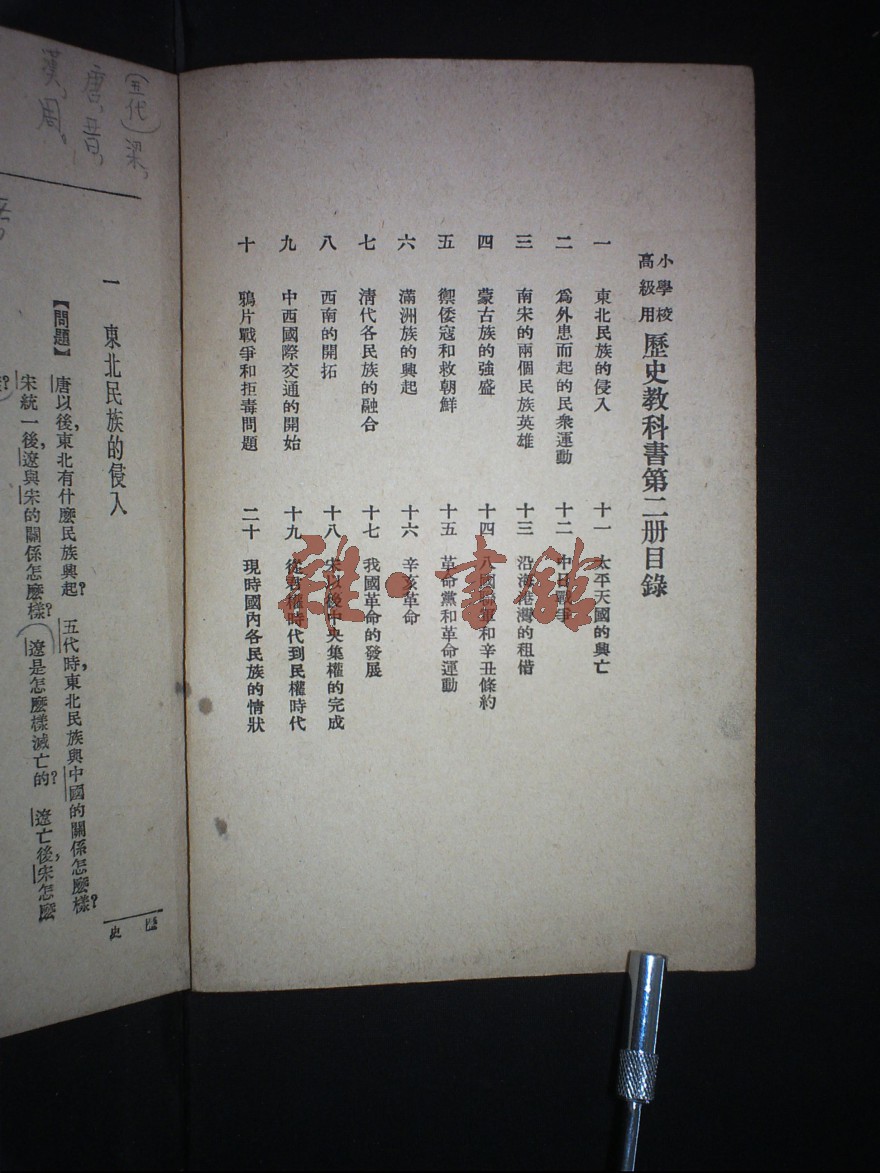 小學校
高級用
歷史教科書第二册目錄
一 東北民族的侵入
二 爲外患而起的民衆運動
三 南宋的兩個民族英雄
四 蒙古族的強盛
五 禦倭寇和救朝鮮
六 滿洲族的興起
七 清代各民族的融合
八 西南的開拓
九 中西國際交通的開始
十 鴉片戰爭和拒毒問題
十一 太平天國的興亡
十二 中日戰爭
十三 沿海港灣的租借
十四 八國聯軍和辛丑條約
十五 革命黨和革命運動
十六 辛亥革命
十七 我國革命的發展
十八 宋以後中央集權的完成
十九 從君權時代到民權時代
二十 現時國內各民族的情狀
雜·書館
歷史
一 東北民族的侵入
【問題】 唐以後，東北有什麽民族興起？ 五代時，東北民族與中國的關係怎麽樣？
宋統一後，遼與宋的關係怎麽樣？ 遼是怎麽樣滅亡的？ 遼亡後，宋怎麽
(五代)梁，
唐，晋，
漢，周。